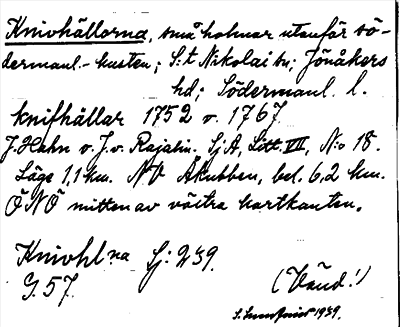 Knivhällorna, små holmar utanför sö-
dermanl.-kusten; S:t Nikolai sn; Jönåkers
hd; Södermanl. l.
knifhällar 1752 v. 1767.
J. Hahn v. J. v. Rajalin. Sj A, Litt. VII, N:o 18.
Läge 1,1 km. NV Akubben, bel. 6,2 km.
ÖNÖ mitten av västra kartkanten.
Knivhl:na Sj: 239.
G. 57.
(Vänd!)
1939.